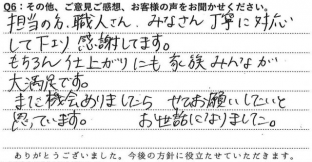 Q6：その他、ご意見ご感想、お客様の声をお聞かせください。
担当の方、職人さん、みなさん丁寧に対応
して下さり 感謝してます。
もちろん 仕上がりにも 家族みんなが
大満足です。
またに機会ありましたら ぜひお願いしたいと
思っています。 お世話になりました。
ありがとうございました。今後の方針に役立たせていただきます。